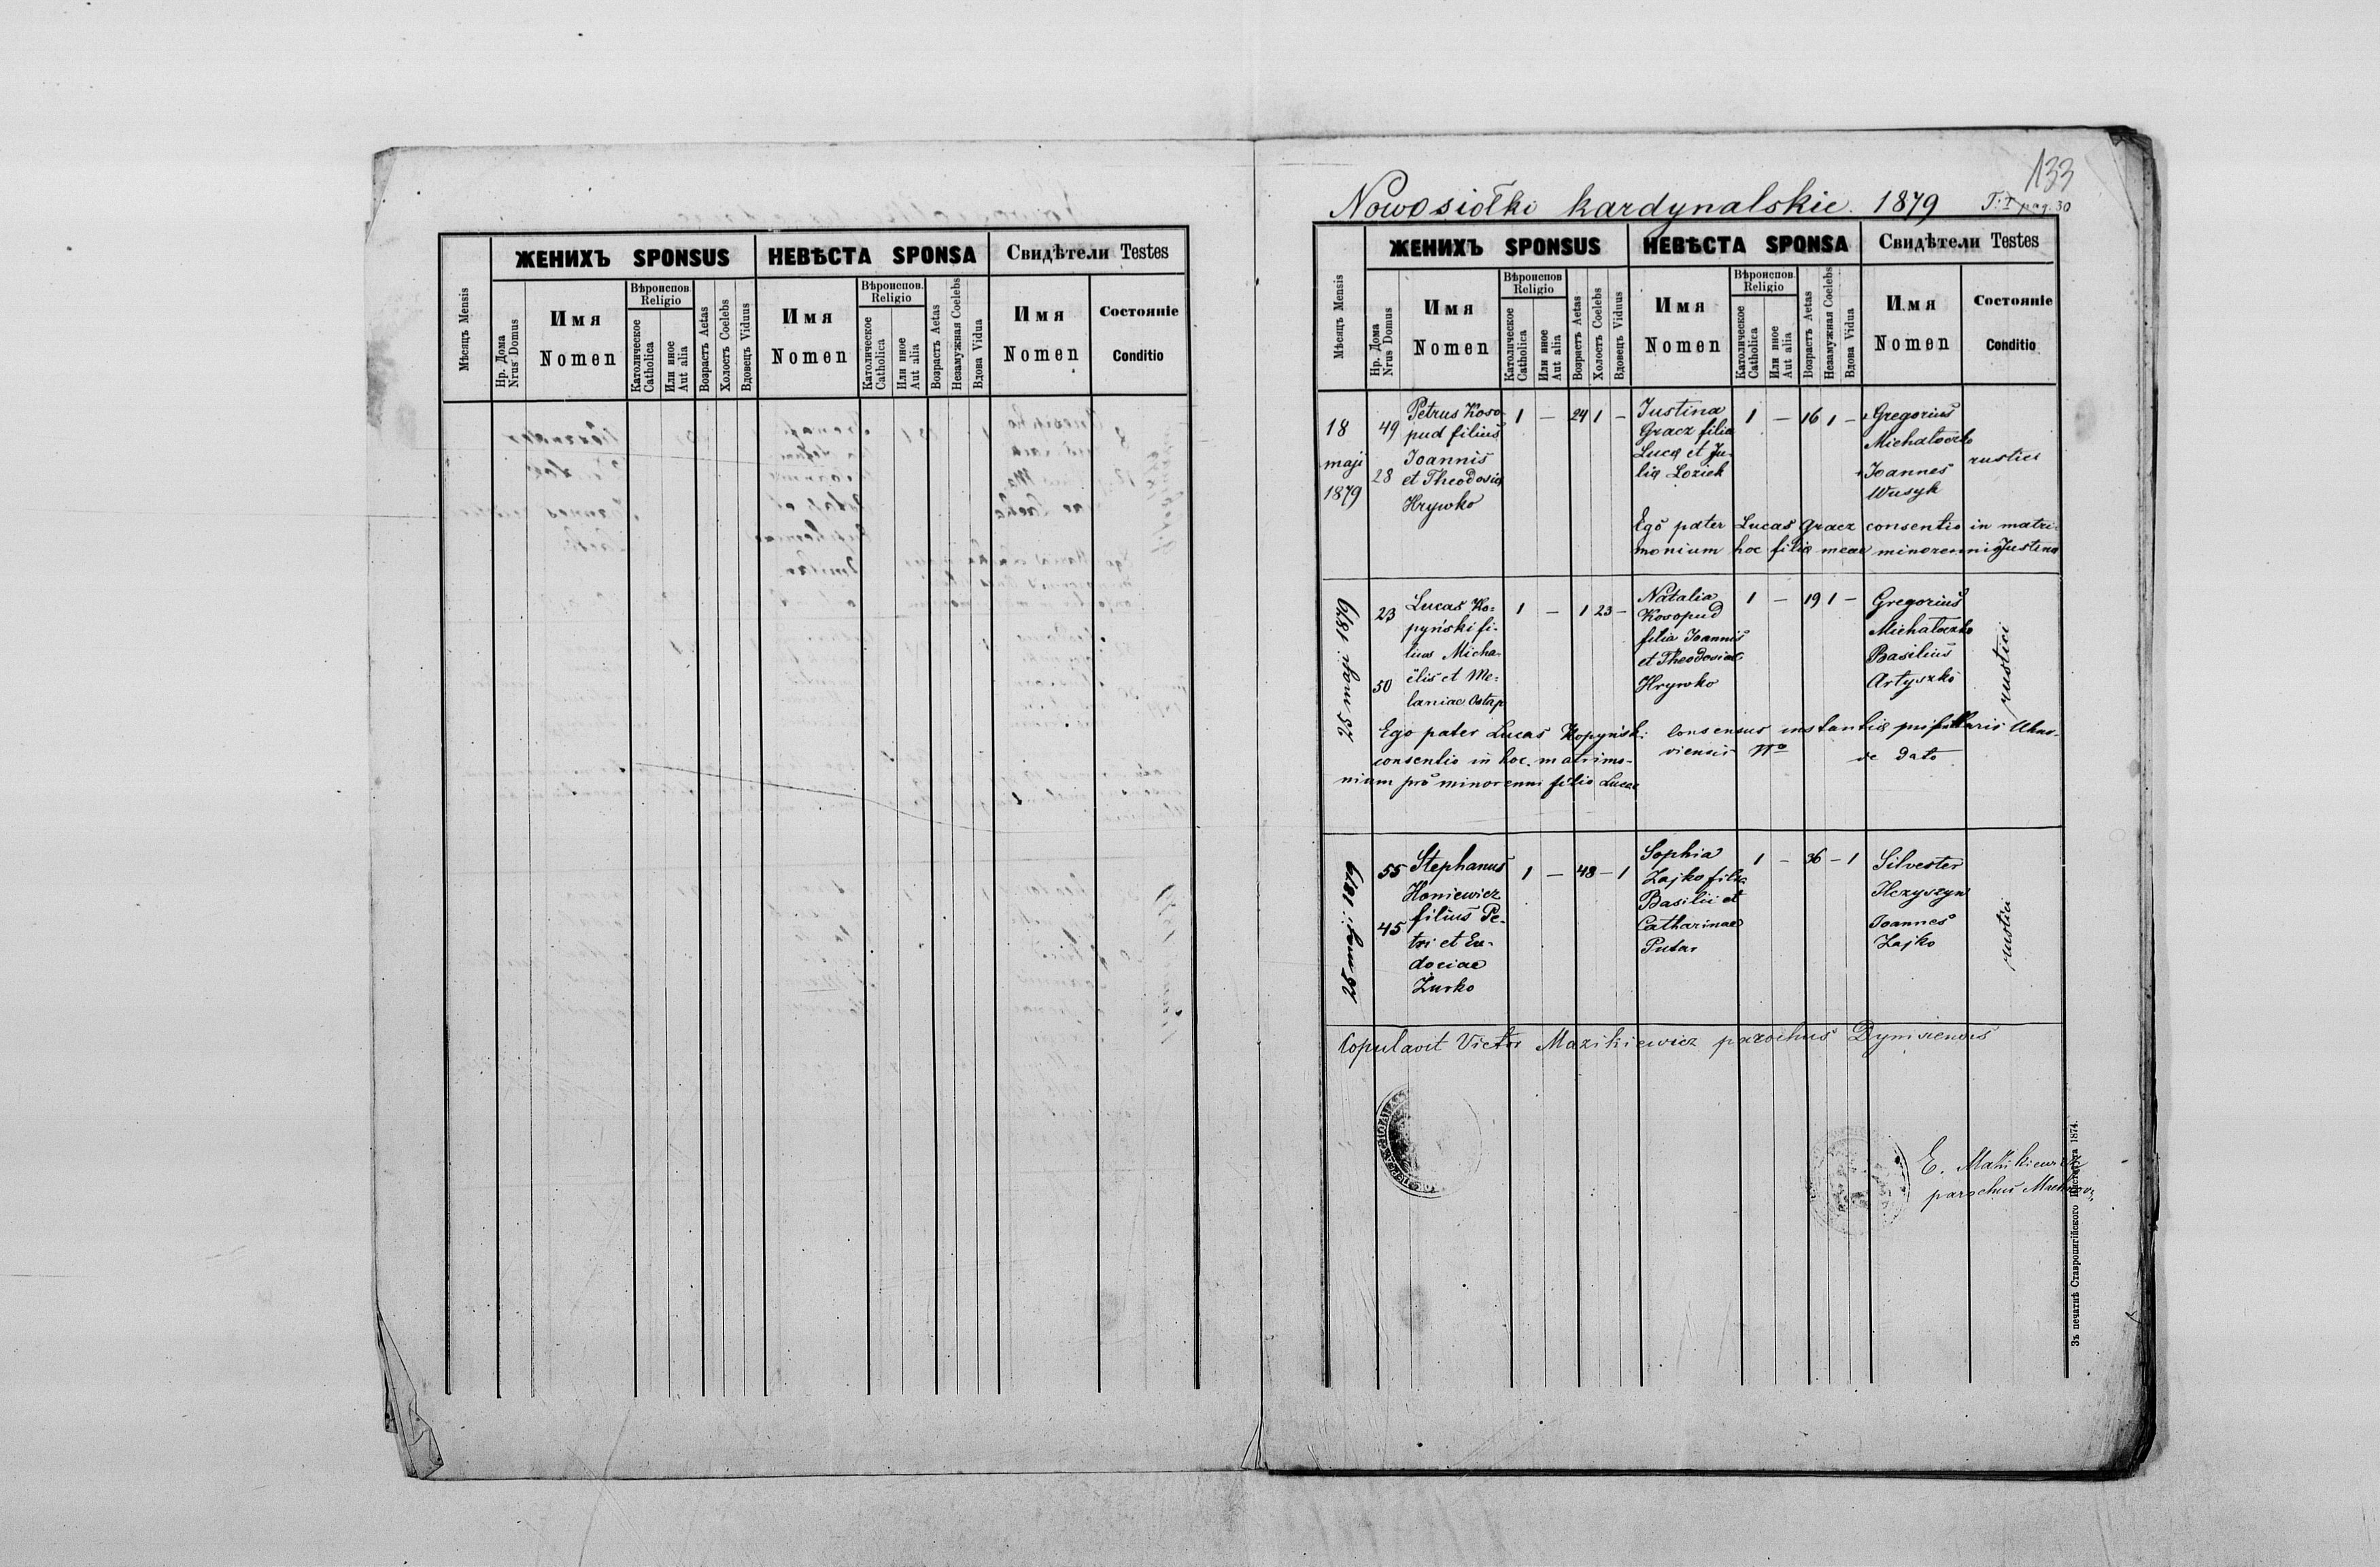 ЖЕНИХЪ SPONSUS НЕВѢСТА SPONSA Свидѣтели Testes
Мѣсяцъ Mensis
Нр. Дома
Nrus Domus
Имя
Nomen
Вѣроиспов.
Religio
Католическое
Catholica
Или иное
Aut alia
Возрастъ Aetas
Холостъ Coelebs
Вдовецъ Viduus
Имя
Nomen
Вѣроиспов.
Religio
Католическое
Catholica
Или иное
Aut alia
Возрастъ Aetas
Незамужная Coelebs
Вдова Vidua
Имя
Nomen
Состояніе
Conditio
133
Nowosiołki kardynalskie. 1879 T: I pag. 30
ЖЕНИХЪ SPONSUS НЕВѢСТА SPONSA Свидѣтели Testes
Мѣсяцъ Mensis
Нр. Дома
Nrus Domus
Имя
Nomen
Вѣроиспов
Religio
Католическое
Catholica
Или иное
Aut alia
Возрастъ Aetas
Холостъ Coelebs
Вдовецъ Viduus
Имя
Nomen
Вѣроиспов.
Religio
Католическое
Catholica
Или иное
Aut alia
Возрастъ Aetas
Незамужная Coelebs
Вдова Vidua
Имя
Nomen
Состояніе
Conditio
18
maji
1879
49
28
Petrus Koso-
pud filius
Joannis
et Theodosia
Hrywko
1 — 24 1 —
Justina
Gracz filia
Luca et Ju-
lia Loziek
1 — 16 1 —
Gregorius
Michałoczko
Joannes
Wusyk
rustici
Ego pater Lucas Gracz consentio in matri-
monium hoc filia meae minorennis Justina
25 maji 1879
23
50
Lucas Ko-
pyński fi-
lius Micha-
ëlis et Me-
laniae Ostap
1 — 1 23 —
Natalia
Kosopud
filia Joannis
et Theodosiae
Hrywko
1 — 19 1 —
Gregorius
Michałoczko
Basilius
Artyszko
rustici
Ego pater Lucas Kopyński
consentio in hoc matrimo-
nium pro minorenni filio Lucae
consensus instantia
viensis No de dato
26 maji 1879
55
45
Stephanus
Honiewicz
filius Pe-
tri et Eu-
dociae
Żurko
1 — 48 — 1
Sophia
Zajko filia
Basilii et
Catharinae
Putar
1 — 36 — 1
Silvester
Ilczyszyn
Joannes
Zajko
rustici
Copulavit Victor Mazikiewicz parochus
E.
parochus
Зъ печатнѣ Ставропигійского Института 1874.